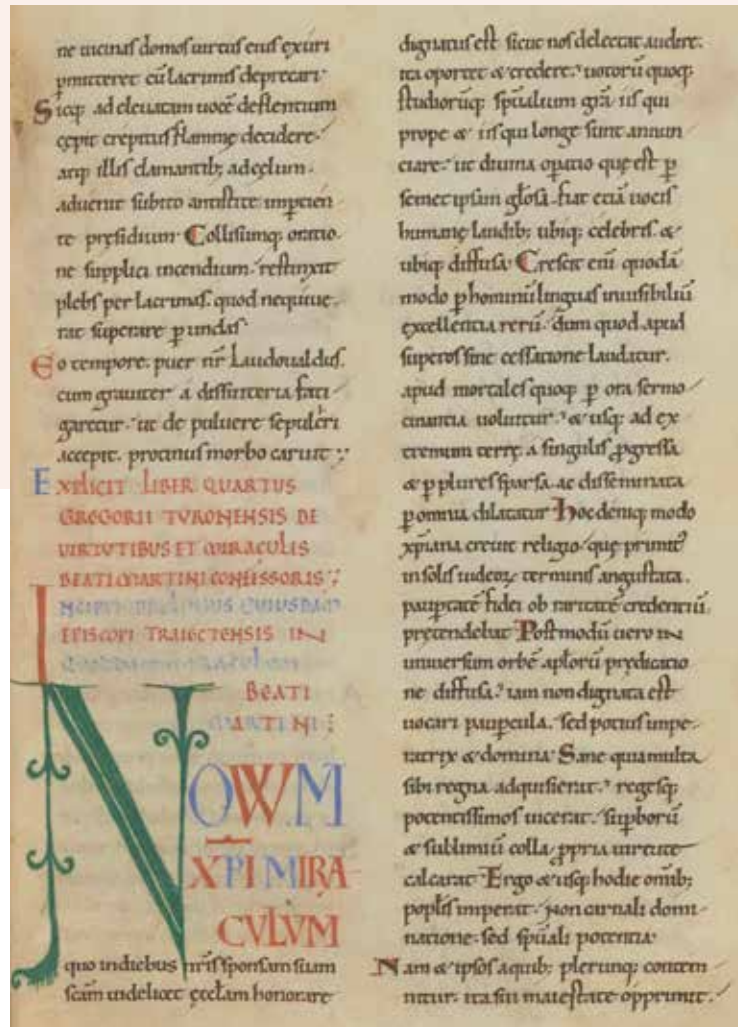 ne uicinas domos uirtus eius exuri
pmitteret cū lacrimis deprecari
Sicq; ad eleuatam uocē deflentium
cępit crepitus flammę decidere
atq; illis clamantib; ad cęlum
aduenit subito antistite impcien
te pręsidium Collisumq; oratio
ne supplici incendium. restinxit
plebs per lacrimas. quod nequiue
rat superare p undas
Eo tempore. puer nr̄ Laudoualdus.
cum grauiter a dissinteria fati
garetur. ut de puluere sepulcri
accepit. protinus morbo caruit
EXPLICIT LIBER QUARTUS
GREGORII TURONENSIS DE
UIRTUTIBUS ET MIRACULIS
BEATI MARTINI CONFESSORIS
INCIPIT CUIUSDAM
EPISCOPI TRAIECTENSIS IN
BEATI
MARTINI
NOWM
XPI MIRA
CVLVM
quo in diebus nr̄is sponsam suam
scam uidelicet ęcclam honorare
dignatus est sicut nos delectat audere.
ita oportet & credere. uotorū quoq;
studiorūq; spūalium grā iis qui
prope & iis qui longe sunt annun
ciare. ut diuina opatio quę est p
semet ipsam glosa. fiat etiā uocis
humanę laudib; ubiq; celebris &
ubiq; diffusa Crescit eni quodā
modo p hominū linguas inuisibiliū
excellentia rerū. dum quod apud
superos sine cessatione laudatur.
apud mortales quoq; p ora sermo
cinantia uoluitur. & usq; ad ex
tremum terrę a singulis pgressa
& p plures sparsa ac disseminata
p omnia dilatatur Hoc deniq; modo
xpiana creuit religio quę primit9
in solis iudeoꝝ terminis angustata.
paupertatē fidei ob raritatē credentiū
pretendebat Postmodū uero in
uniuersum orbē aplorū prędicatio
ne diffusa. iam non dignata est
uocari paupcula. sed potius impe
ratrix & domina Sane quia multa
sibi regna adquisierat. regesq;
potentissimos uicerat. supborū
& sublimiū colla ppria uirtute
calcarat Ergo & usq; hodie omib;
poplis imperat. Non carnali domi
natione. sed spūali potentia
Nam & ipsos a quib; plerunq; contem
nitur. ita sui maiestate opprimit.